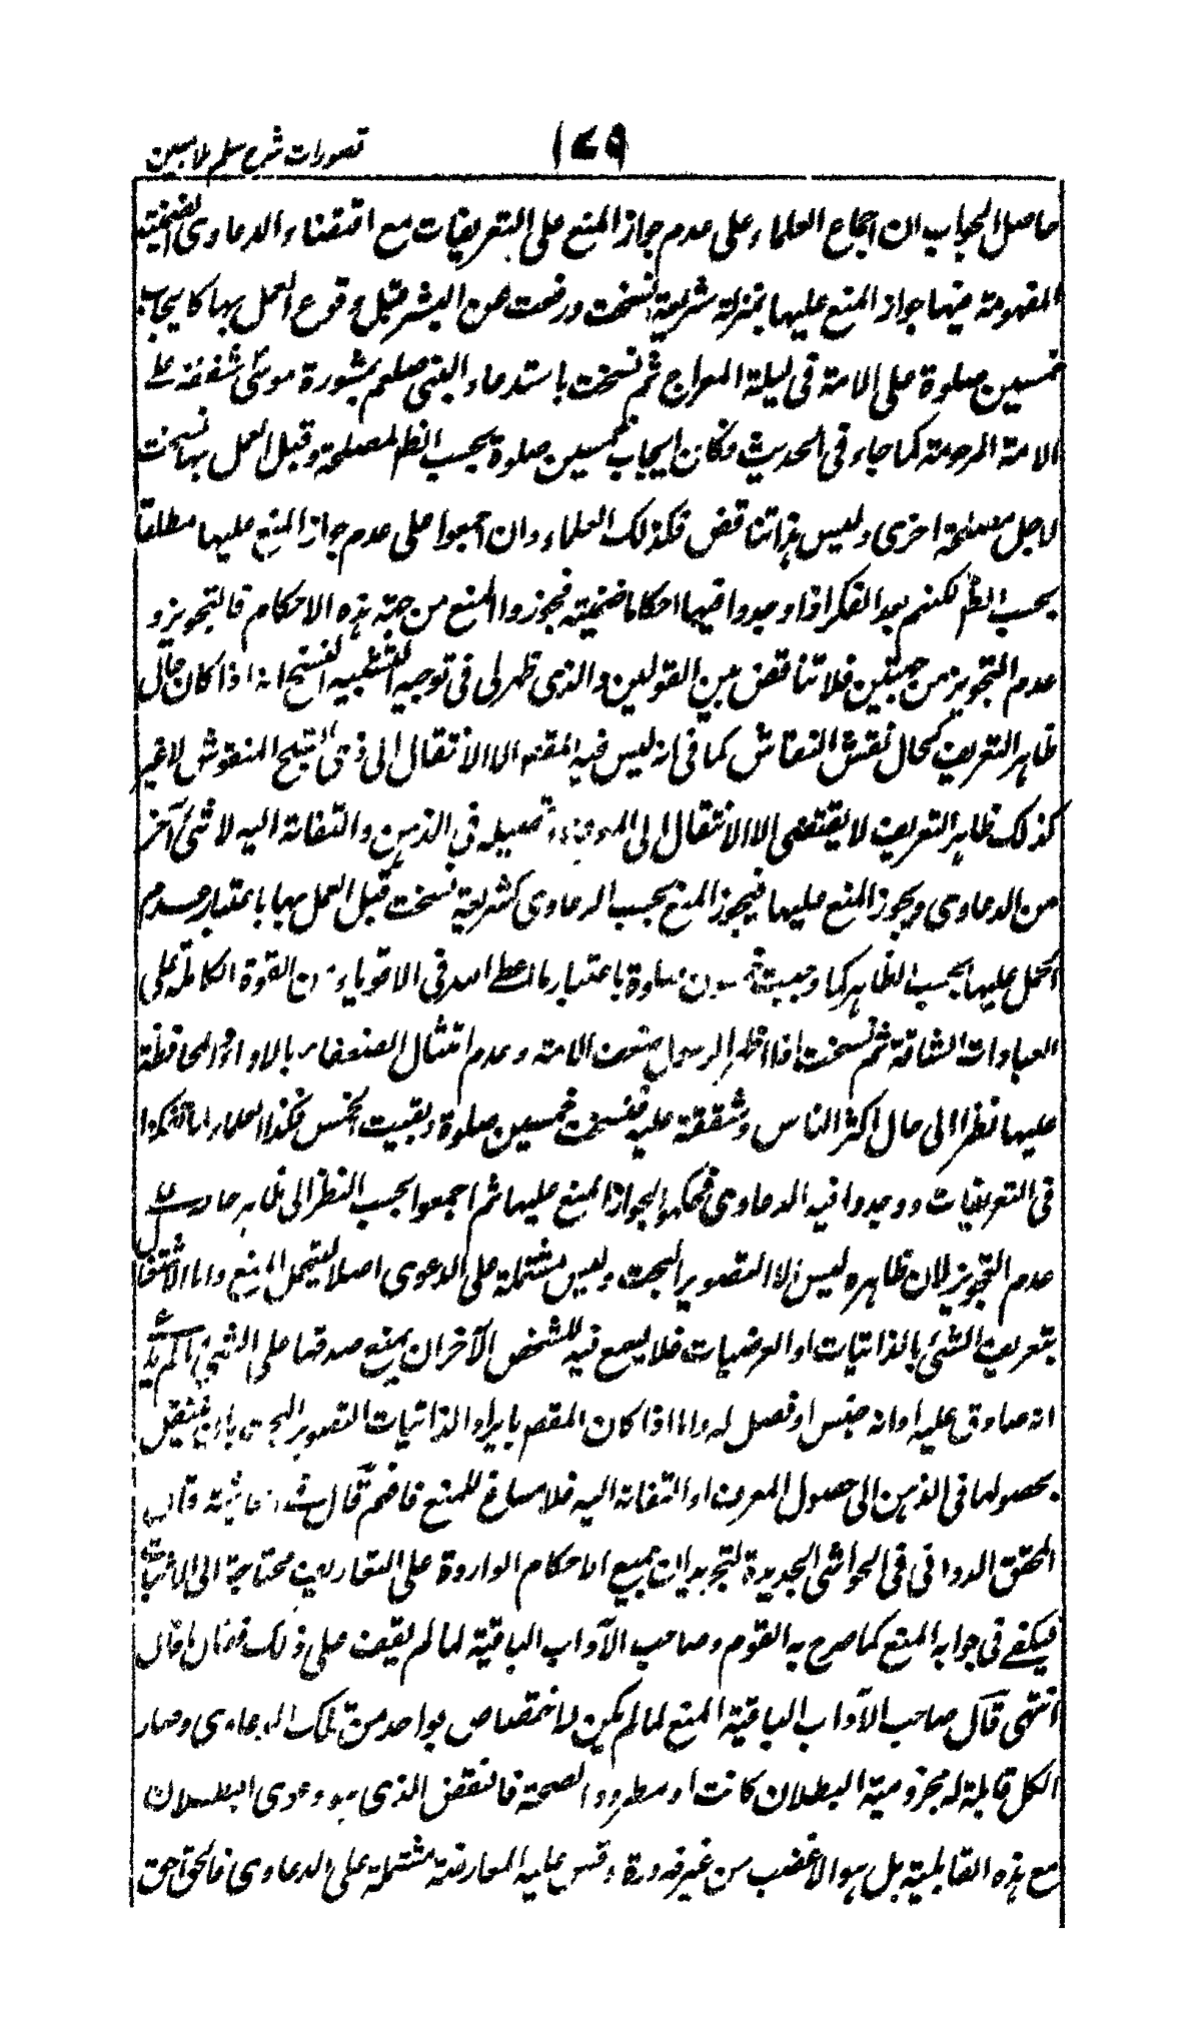 تصورات شرح سلم ملا مبين
١٧٩
حاصل الجواب ان اجماع العلماء على عدم جواز المنع على التعريفات مع اقتضاء الدعاوى الضمنية
المفهومة منها جواز المنع عليها بمنزلة شريعة نسخت ورفعت عن البشر قبل وقوع العمل بها كايجاب
خمسين صلوة على الامة فى ليلة المعراج ثم نسخت باستدعاء النبى صلعم بمشورة موسى شفقة على
الامة المرحومة كما جاء فى الحديث فكان ايجاب خمسين صلوة بحسب الظ لمصلحة وقبل العمل بها نسخت
لاجل مصلحة اخرى وليس هذا تناقض فكذلك العلماء وان اجمعوا على عدم جواز المنع عليها مطلقا
بحسب الظ لكنهم بعد الفكر اذا وجدوا فيها احكاما ضمنية فجوزوا المنع من جهة هذه الاحكام فالتجويز و
عدم التجويز من جهتين فلا تناقض بين القولين والذى ظهر لى فى توجيه التشبيه لنسخ انه اذا كان حال
ظاهر التعريف كحال نقش النقاش كما فى انه ليس فيه المقصم الا الانتقال الى ذى الشبح المنقوش لا غير
كذلك ظاهر التعريف لا يقتضى الا الانتقال الى المعرف وتحصيله فى الذهن والتفاتة اليه لا شئ آخر
من الدعاوى ويجوز المنع عليها فيجوز المنع بحسب الدعاوى كشريعة نسخت قبل العمل بها باعتبار عدم
الحمل عليها بحسب الظاهر كما وجبت خمسون صلوة باعتبار ما اعطا الله فى الاقوياء من القوة الكاملة على
العبادات الشاقة ثم نسخت اذا اظهر الرسول ضعف الامة وعدم امتثال الضعفاء بالاوامر والمحافظة
عليها نظرا الى حال اكثر الناس وشفقة عليه فنسخت خمسين صلوة وبقيت الخمس فكذا العلماء لما تفكروا
فى التعريفات ووجدوا فيه الدعاوى فحكموا بجواز المنع عليها ثم اجمعوا بحسب النظر الى ظاهر حاله على
عدم التجويز لان ظاهره ليس الا التصوير البحت وليس مشتملة على الدعوى اصلا ليتحمل المنع واما الاشتغال
بتعريف الشئ بالذاتيات او العرضيات فلا يسع فيه للشخص الآخر ان يمنع صدقها على الشئ ما لم يدع
انه صادق عليه او انه جنس او فصل له واما اذا كان المقصم بايراد الذاتيات التصوير البحت بان ينتقل
بحصولها فى الذهن الى حصول المعرف او التفاتة اليه فلا مساغ للمنع فافهم قال فى الحاشية قال
المحقق الدوانى فى الحواشى الجديدة لتجريد ان جميع الاحكام الواردة على التعاريف محتاجة الى الاثبات
فيكفى فى جوابه المنع كما صرح به القوم وصاحب الآداب الباقية لما لم يقف على ذلك فقال ما قال
انتهى قال صاحب الآداب الباقية المنع لما لم يكن له اختصاص بواحد من تلك الدعاوى وصار
الكل قابلة له مجزومية البطلان كانت او مطرود الصحة فالنقض الذى هو دعوى البطلان
مع هذه القابلية بل هو الا غصب من غير ضرورة وقس عليه المعارضة مشتملة على الدعاوى فالحق احق